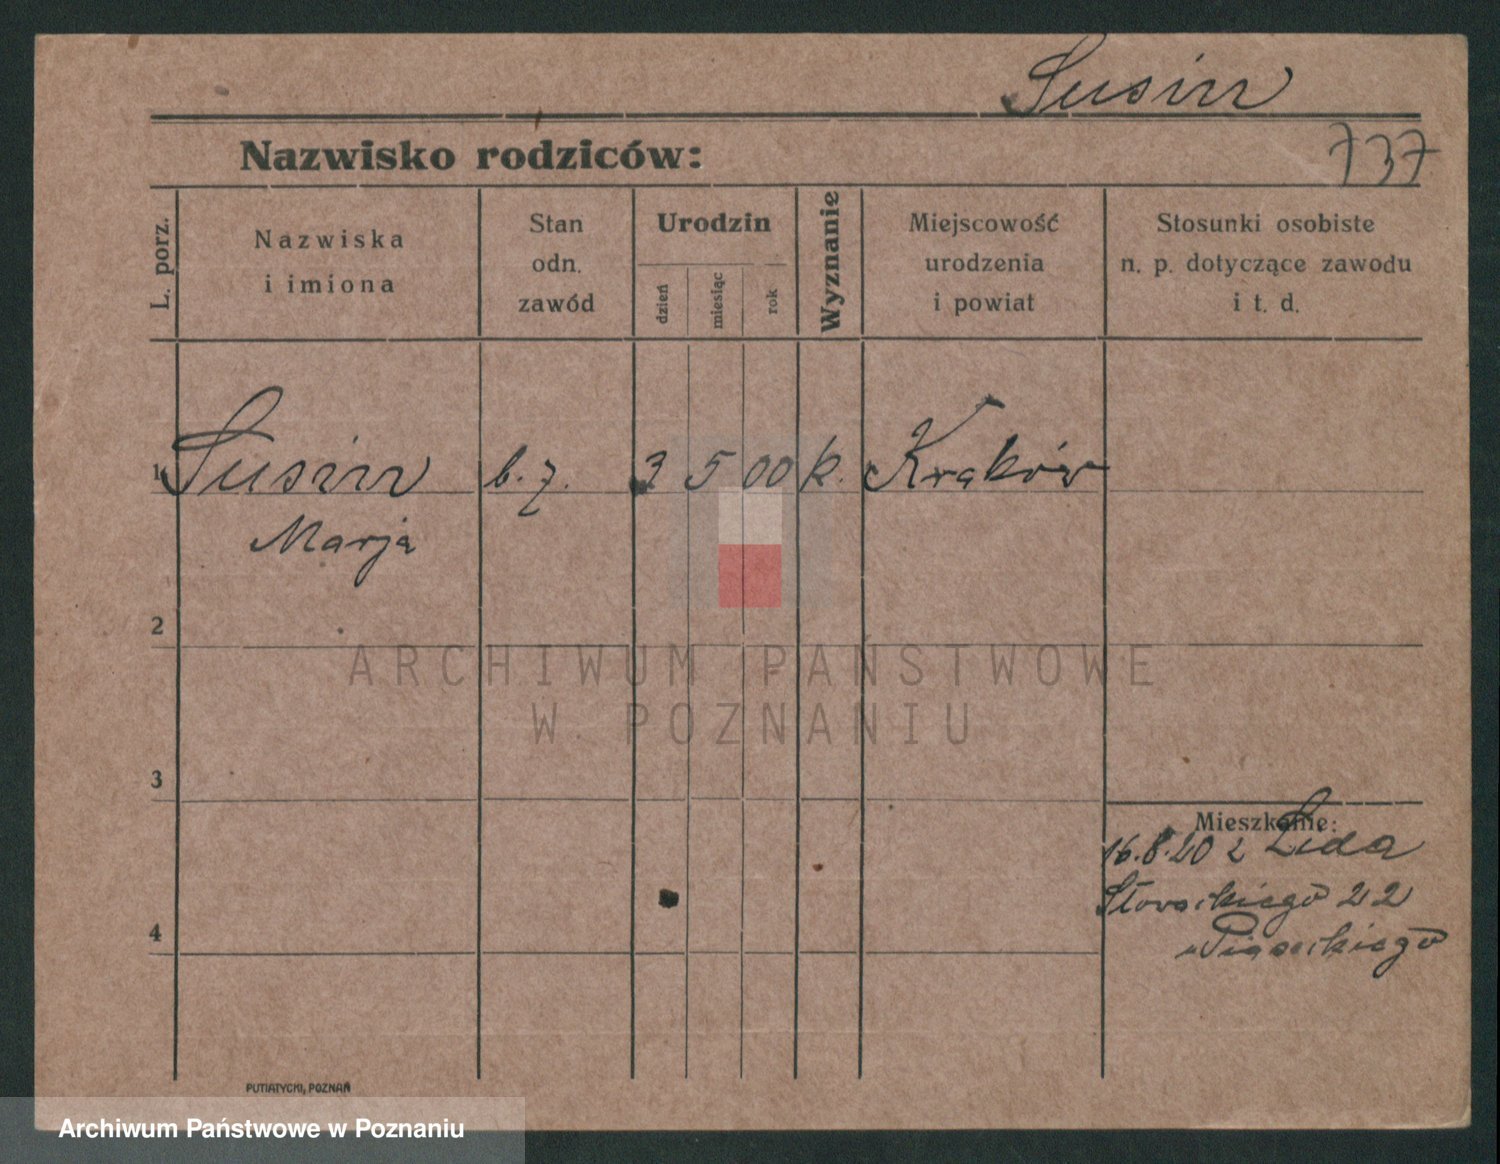 Susin
737
Nazwisko rodziców:
L. porz.
Nazwiska
i imiona
Stan
odn.
zawód
Urodzin
dzień
miesiąc
rok
Wyznanie
Miejscowość
urodzenia
i powiat
Stosunki osobiste
n. p. dotyczące zawodu
i t. d.
1 Susin b. z. 3 5 00 k. Kraków
Marja
2
ARCHIWUM PAŃSTWOWE
W POZNANIU
3
Mieszkanie:
16.8.20 z Lida
Słowackiego 22
Piaseckiego
4
PUTIATYCKI, POZNAŃ
Archiwum Państwowe w Poznaniu